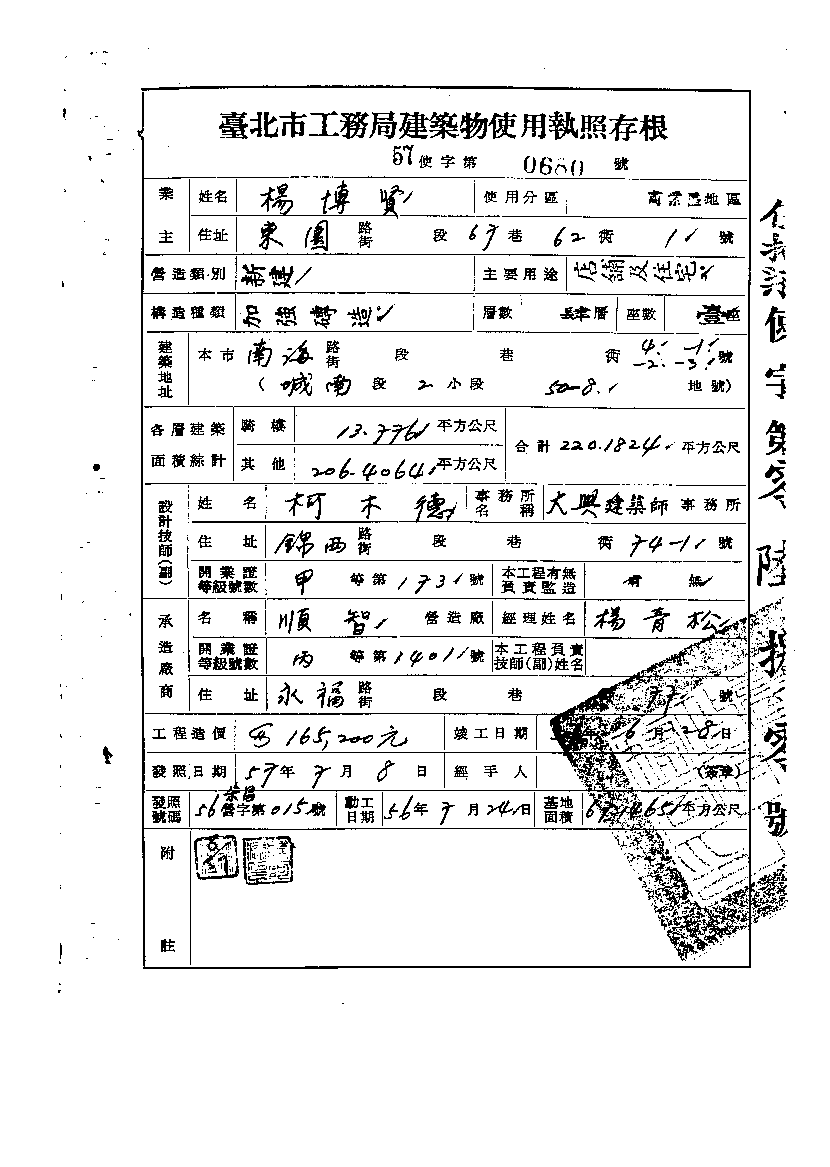 臺北市工務局建築物使用執照存根
57使字第 0680 號
業主 姓名 楊博賢 使用分區 商業區地區
住址 東園 路街 段 67巷 62衖 11號
營造類別 新建 主要用途 店鋪及住宅
構造種類 加強磚造 層數 層 座數 座
建築地址 本市 南海 路街 段 巷 衖 4.-1.-2.-3.號
(城南段 2小段 50-8. 地號)
各層建築面積綜計 騎樓 13.7761平方公尺 合計 220.1824平方公尺
其他 206.4064平方公尺
設計技師(副) 姓名 柯木德 事務所名稱 大興建築師事務所
住址 錦西 路街 段 巷 衖 74-1號
開業證等級號數 甲等第1731號 本工程有無負責監造 有 無
承造廠商 名稱 順智 營造廠 經理姓名 楊青松
開業證等級號數 丙等第1401號 本工程負責技師(副)姓名
住址 永福 路街 段 巷 77 號
工程造價 165,200元 竣工日期 年6月28日
發照日期 57年7月8日 經手人 (簽章)
發照號碼 56營字第015號 動工日期 56年7月24日 基地面積 平方公尺
附註
使字第零陸捌零號